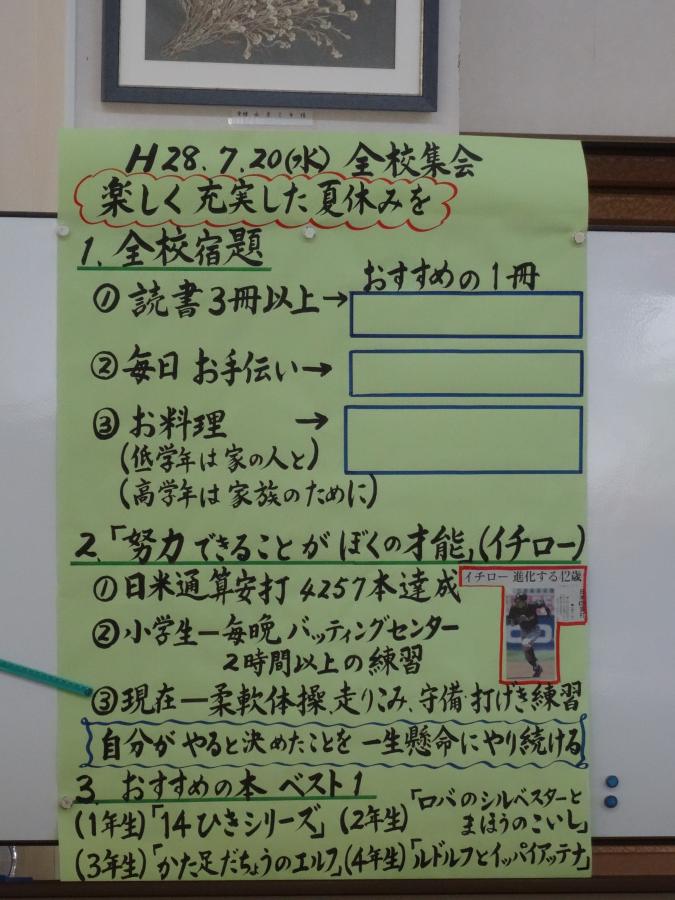 H28.7.20(水) 全校集会
楽しく充実した夏休みを
1. 全校宿題
おすすめの1冊
① 読書3冊以上→
② 毎日 お手伝い→
③ お料理 →
(低学年は家の人と)
(高学年は家族のために)
2.「努力できることがぼくの才能」(イチロー)
① 日米通算安打 4257本達成
イチロー 進化する42歳
② 小学生ー毎晩 バッティングセンター
2時間以上の練習
③ 現在ー柔軟体操、走りこみ、守備・打げき練習
自分がやると決めたことを一生懸命にやり続ける
3. おすすめの本 ベスト1
(1年生)「14ひきシリーズ」(2年生)「ロバのシルベスターと
まほうのこいし」
(3年生)「かた足だちょうのエルフ」(4年生)「ルドルフとイッパイアッテナ」